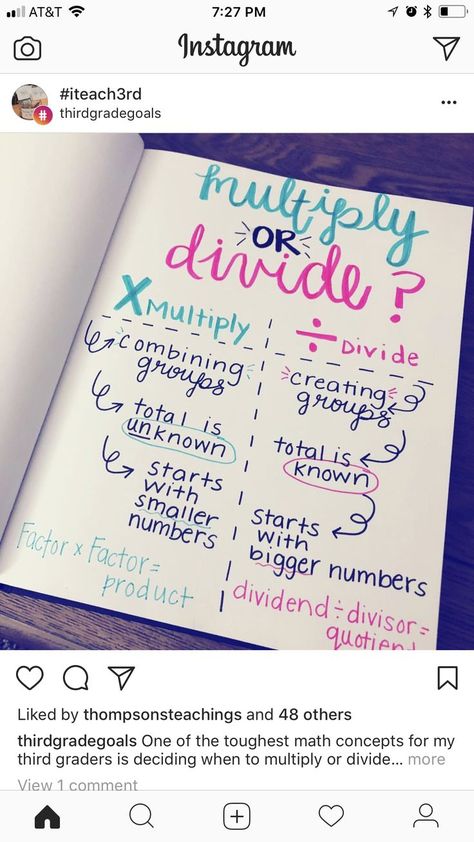 AT&T 7:27 PM
Instagram
#iteach3rd
thirdgradegoals
multiply
OR
divide?
X Multiply
÷ Divide
combining
groups
creating
groups
total is
unknown
total is
known
starts
with
smaller
numbers
starts
with
bigger numbers
Factor x Factor =
product
dividend ÷ divisor =
quotient
Liked by thompsonsteachings and 48 others
thirdgradegoals One of the toughest math concepts for my
third graders is deciding when to multiply or divide... more
View 1 comment